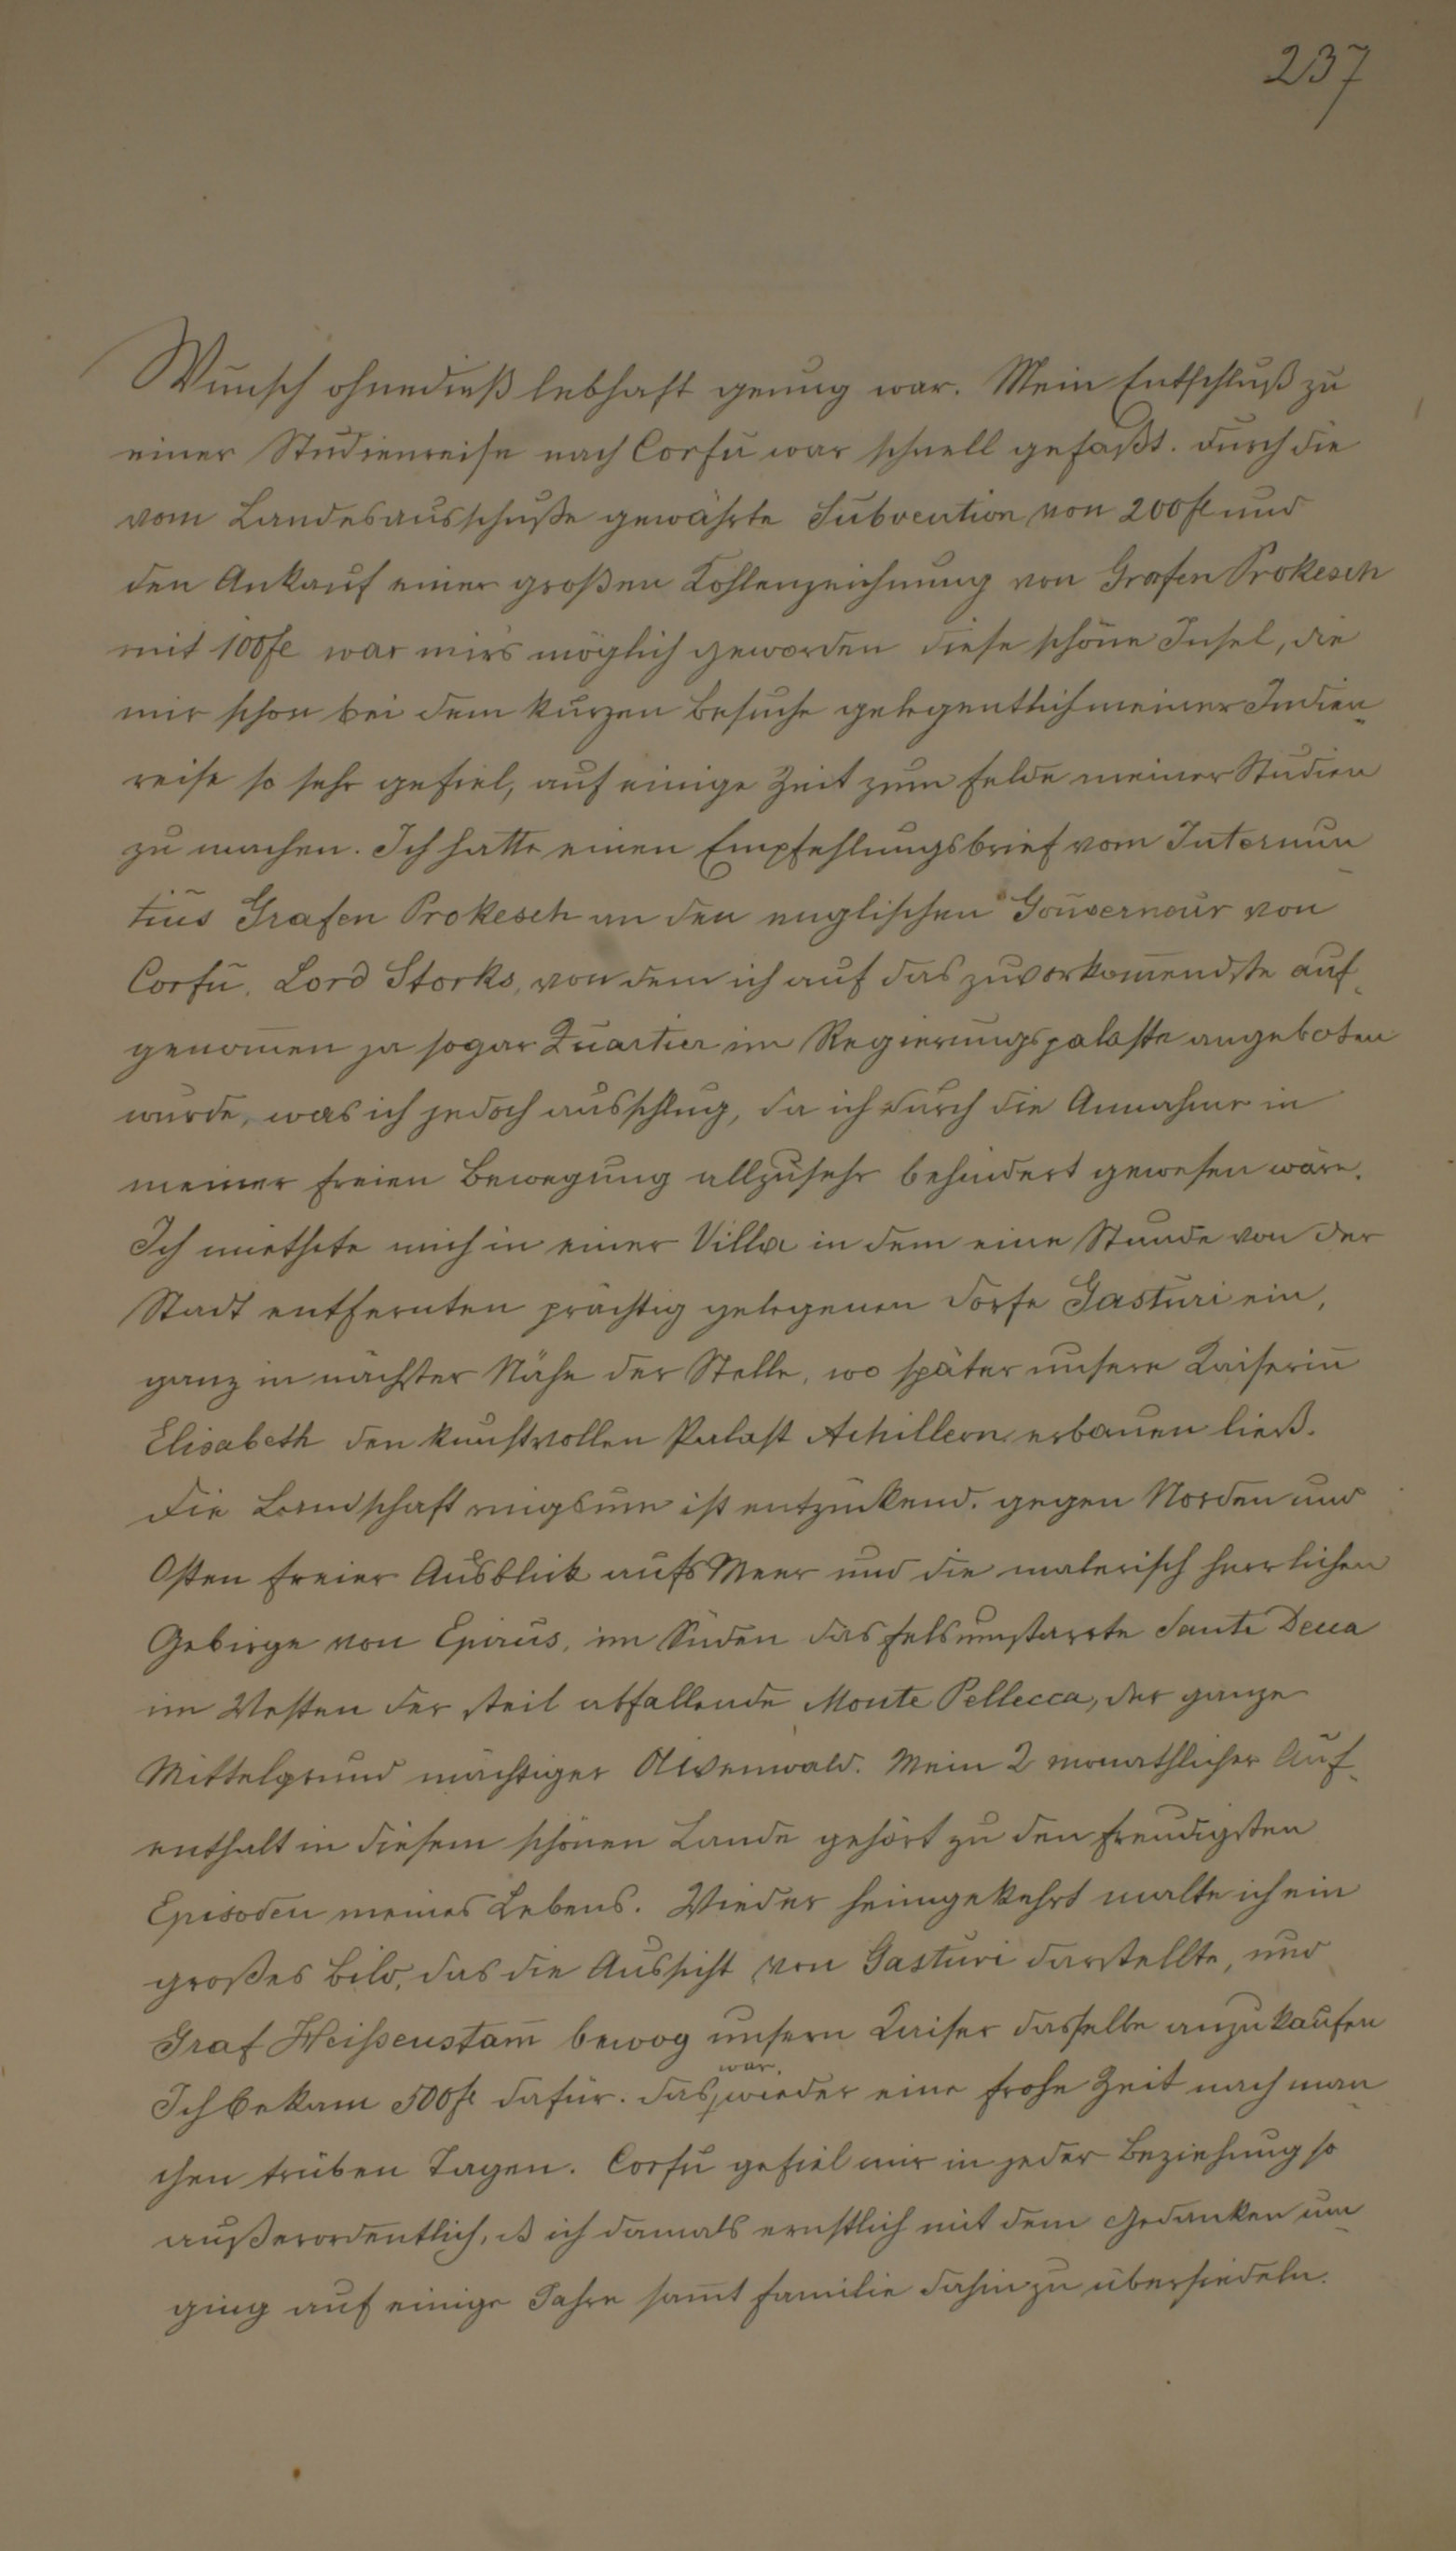 237
Wunsch ohnedieß lebhaft genug war. Mein Entschluß zu
einer Studienreise nach Corfu war schnell gefaßt. Durch die
vom Landesausschuße gewährte Subvention von 200 fl und
den Ankauf einer großen Kohlenzeichnung von Grafen Prokesch
mit 100 fl war mirs möglich geworden diese schöne Insel, die
mir schon bei dem kurzen Besuche gelegentlich meiner Indien-
reise so sehr gefiel, auf einige Zeit zum Felde meiner Studien
zu machen. Ich hatte einen Empfehlungsbrief vom Internun-
tius Grafen Prokesch an den englischen Gouverneur von
Corfu, Lord Storks, von dem ich auf das zuvorkom̅endste auf-
genom̅en ja sogar Quartier im Regierungspalaste angeboten
wurde, was ich jedoch ausschlug, da ich durch die Annahme in
meiner freien Bewegung allzusehr behindert gewesen wäre.
Ich miethete mich in einer Villa in dem eine Stunde von der
Stadt entfernten prächtig gelegenen Dorfe Gasturi ein,
ganz in nächster Nähe der Stelle, wo später unsere Kaiserin̅
Elisabeth den kunstvollen Palast Achilleon erbauen ließ.
Die Landschaft ringsum ist entzückend. gegen Norden und
Osten freier Ausblick aufs Meer und die malerisch herrlichen
Gebirge von Epirus, im Süden das felsumstarrte Santi Deca
im Westen der steil abfallende Monte Pellecca, der ganze
Mittelgrund mächtiger Olivenwald. Mein 2 monathlicher Auf-
enthalt in diesem schönen Lande gehört zu den freudigsten
Episoden meines Lebens. Wieder heimgekehrt malte ich ein
großes Bild, das die Aussicht von Gasturi darstellte, und
Graf Heißenstam̅ bewog unsern Kaiser dasselbe anzukaufen
Ich bekam 500 fl dafür. Das war wieder eine frohe Zeit nach man-
chen trüben Tagen. Corfu gefiel mir in jeder Beziehung so
außerordentlich, ß ich damals ernstlich mit dem Gedanken um-
ging auf einige Jahre sam̅t Familie dahin zu übersiedeln.